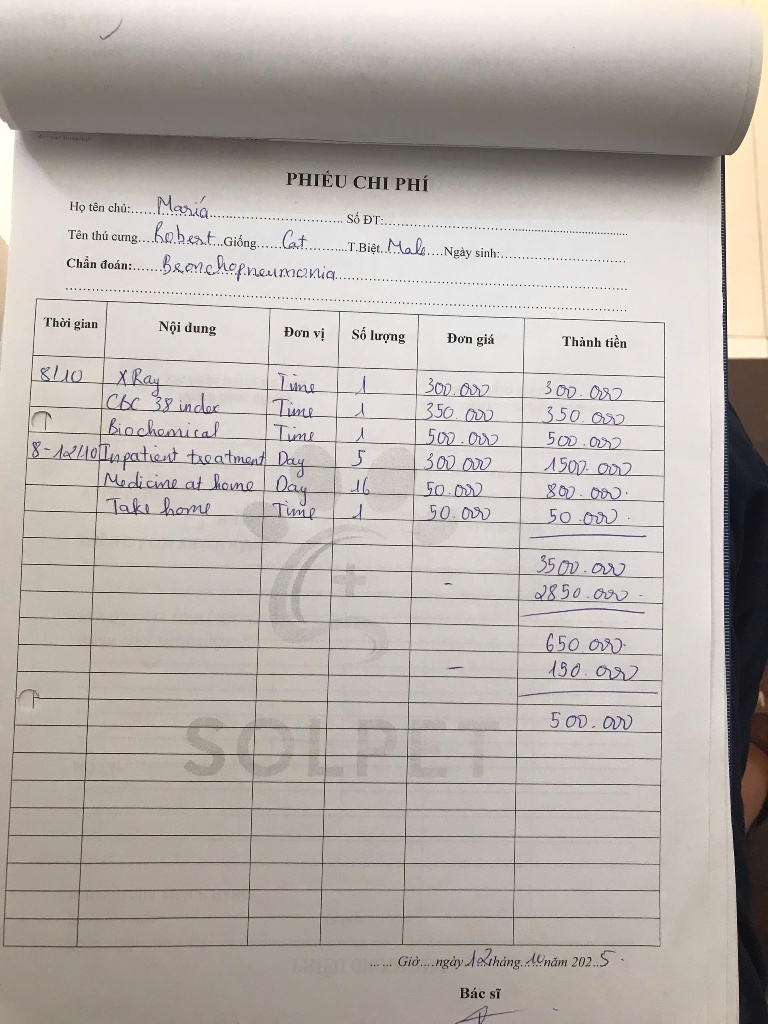 PHIẾU CHI PHÍ
Họ tên chủ: Maria Số ĐT:
Tên thú cưng Robert Giống Cat T.Biệt Male Ngày sinh:
Chẩn đoán: Bronchopneumonia
Thời gian Nội dung Đơn vị Số lượng Đơn giá Thành tiền
8/10 X Ray Time 1 300.000 300.000
CBC 38 index Time 1 350.000 350.000
Biochemical Time 1 500.000 500.000
8-12/10 Inpatient treatment Day 5 300 000 1500.000
Medicine at home Day 16 50.000 800.000
Take home Time 1 50.000 50.000
3500.000
- 2850.000
650.000
- 150.000
500.000
SOLPET
Giờ ngày 12 tháng 10 năm 2025
Bác sĩ